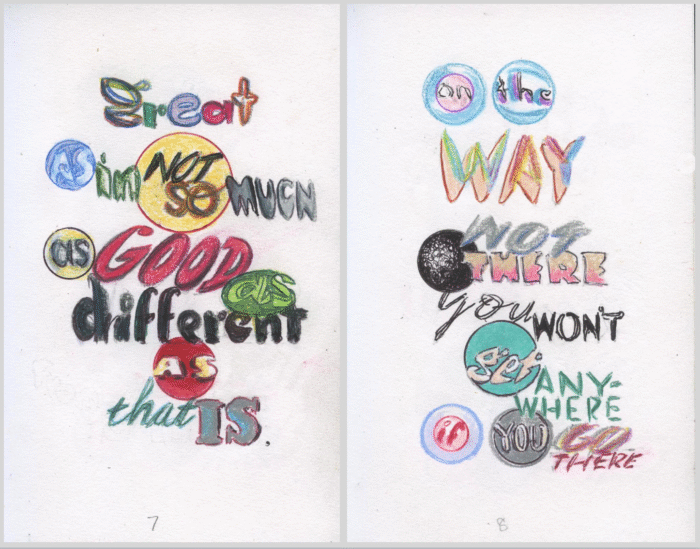 great
AS in NOT SO MUCH
as GOOD as
different
AS
that IS.
7
on the
WAY
NOT
THERE
you WON'T
get ANY-
WHERE
if YOU GO
THERE
8